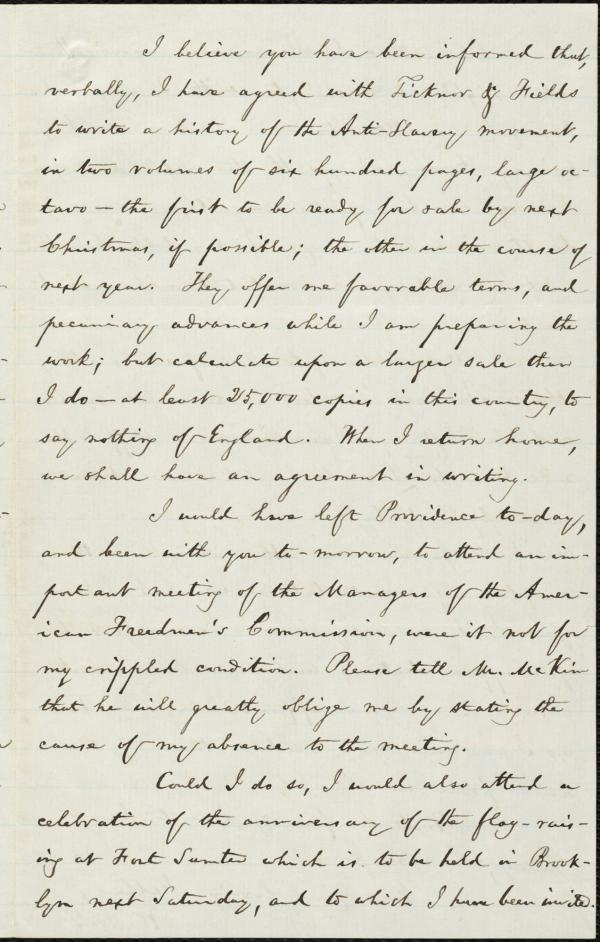 I believe you have been informed that,
verbally, I have agreed with Ticknor & Fields
to write a history of the Anti-Slavery movement,
in two volumes of six hundred pages, large oc-
tavo — the first to be ready for sale by next
Christmas, if possible; the other in the course of
next year. They offer me favorable terms, and
pecuniary advances while I am preparing the
work; but calculate upon a larger sale than
I do — at least 25,000 copies in this country, to
say nothing of England. When I return home,
we shall have an agreement in writing.
I would have left Providence to-day,
and been with you to-morrow, to attend an im-
portant meeting of the Managers of the Amer-
ican Freedmen's Commission, were it not for
my crippled condition. Please tell Mr. McKim
that he will greatly oblige me by stating the
cause of my absence to the meeting.
Could I do so, I would also attend a
celebration of the anniversary of the flag-rais-
ing at Fort Sumter which is to be held in Brook-
lyn next Saturday, and to which I have been invited.